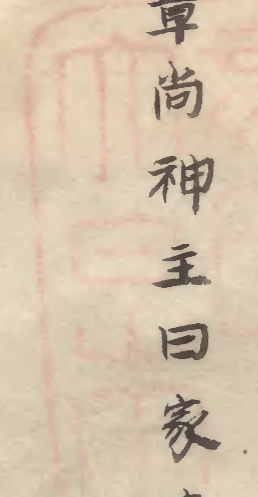 章尚神主曰家